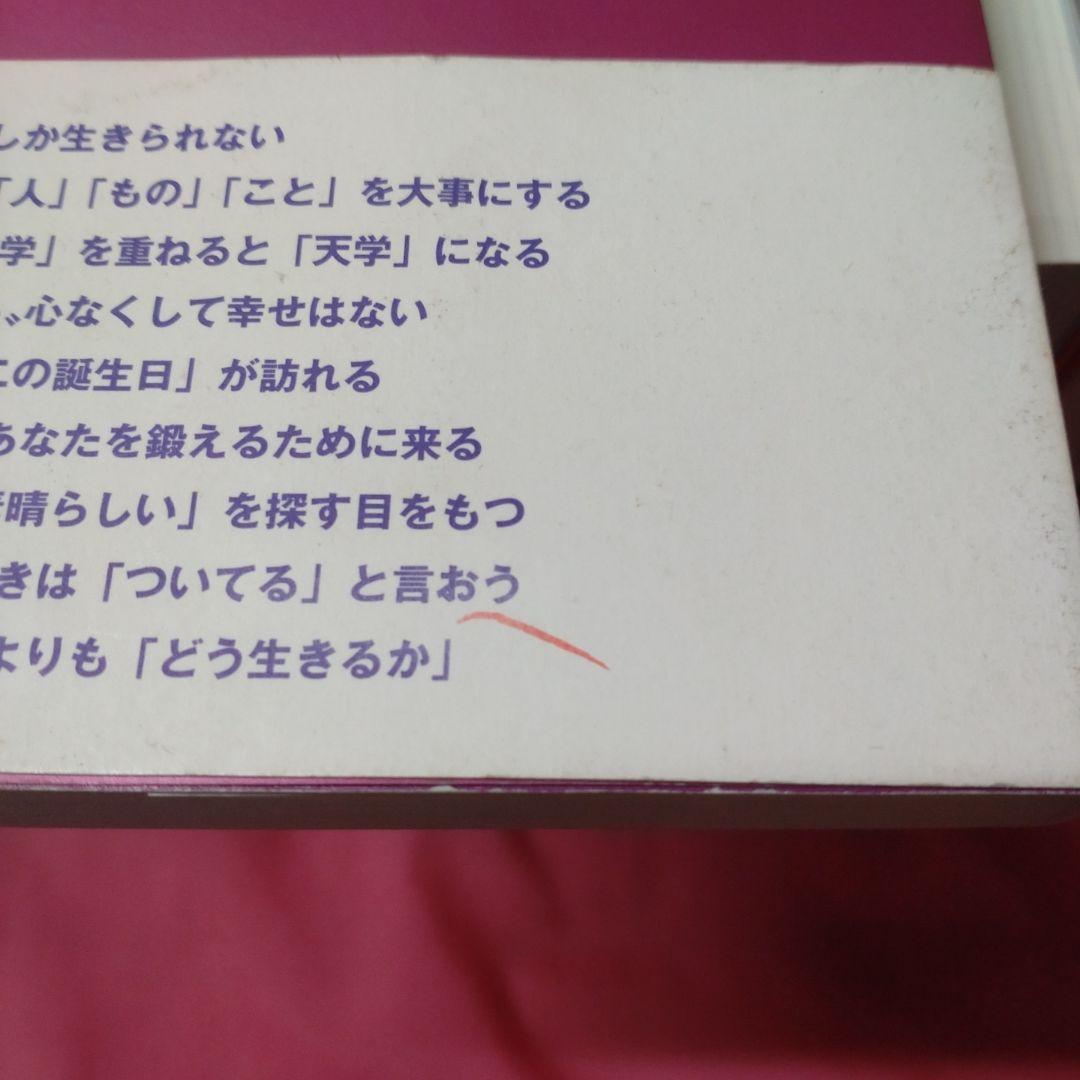 しか生きられない
「人」「もの」「こと」を大事にする
学」を重ねると「天学」になる
心なくして幸せはない
この誕生日」が訪れる
あなたを鍛えるために来る
晴らしい」を探す目をもつ
きは「ついてる」と言おう
よりも「どう生きるか」